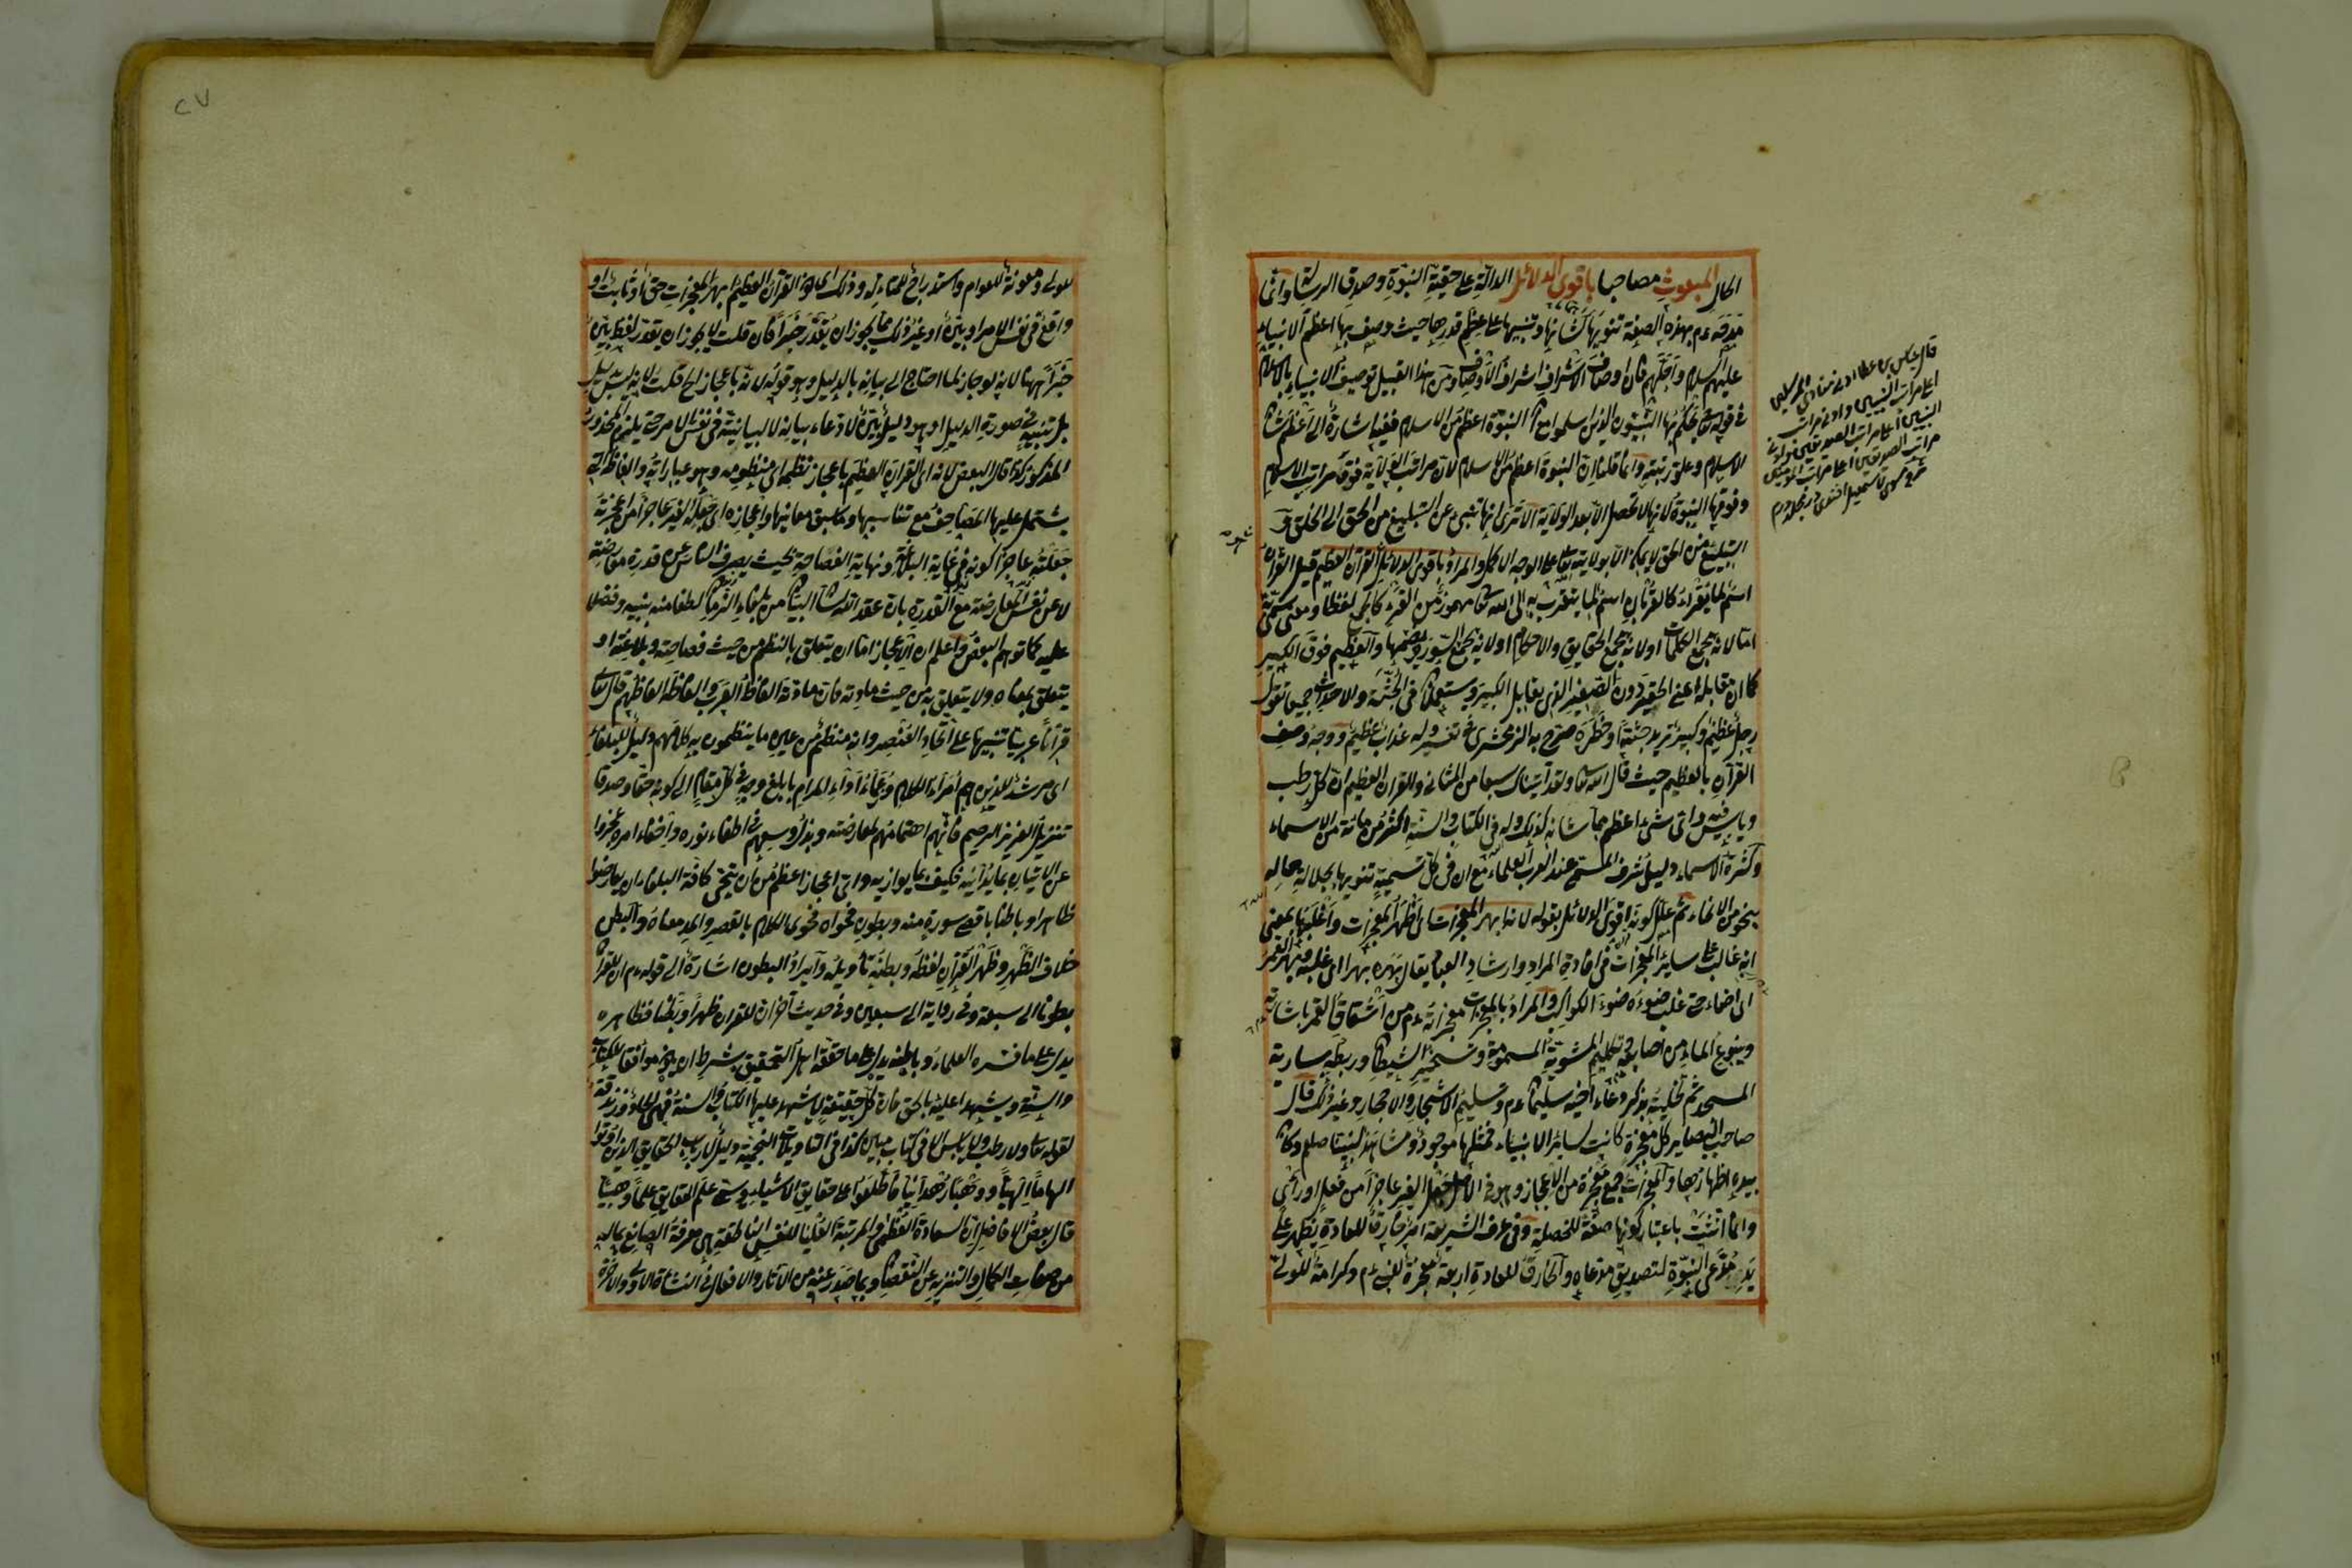 الحال المبعوث مصاحبا باقوى الدلائل الدالة على حقية النبوة وصدق الرسالة وانما
مدحه عم بهذه الصفة تنويها لشانها وتنبيها على عظم قدرها حيث وصف بها اعظم الانبياء
عليهم السلام واجلهم فان اوصاف الاشراف اشراف الاوصاف ومن هذا القبيل توصيف الانبياء بالاسلام
في قوله تع يحكم بها النبيون الذين اسلموا مع ان النبوة اعظم من الاسلام ففيه اشارة الى اعظم شان
الاسلام وعلو رتبته وانما قلنا ان النبوة اعظم من الاسلام لان مراتب الولاية فوق مراتب الاسلام
وفوقها النبوة لانها لا تحصل الا بعد الولاية الا ترى انها تنبئ عن التبليغ من الحق الى الخلق و
التبليغ من الحق لا يمكن الا بولاية على الوجه الاكمل والمراد باقوى الدلائل القرآن العظيم قيل القرآن
اسم لما يقراء كالقربان اسم لما يتقرب به الى الله تع مهموز من القرء كالجمع لفظا ومعنى سمى به
امالانه يجمع الكلمات اولانه يجمع الحقايق والاحكام اولانه يجمع السور ويضمها والعظيم فوق الكبير
كما ان مقابله اعنى الحقير دون الصغير الذى يقابل الكبير ويستعملان في الجثة والاحداث جميعا تقول
رجل عظيم وكبير تريد جثته او خطره صرح به الزمخشرى في تفسير وله عذاب عظيم ووجه وصف
القرآن بالعظيم حيث قال الله تع ولقد آتيناك سبعا من المثاني والقرآن العظيم ان كل رطب
ويابس فيه واى شئ اعظم مما شانه كذلك وله في الكتاب والسنة اكثر من مائة من الاسماء
وكثرة الاسماء دليل شرف المسمى عند العرب العلماء مع ان في كل تسمية تنويها بجلاله حاله
بنحو من الانحاء ثم علل كونه اقوى الدلائل بقوله لانه ابهر المعجزات اى اظهر المعجزات واغلبها بمعنى
انه غالب على سائر المعجزات في افادة المراد وارشاد العباد يقال بهره بهرا اى غلبه وبهر القمر
اى اضاء حتى غلب ضوءه ضوء الكواكب والمراد بالمعجزات معجزاته عم من انشقاق القمر باشارته
وينبوع الماء من اصابعه وتكليم المشوية المسمومة وتسخير الشيطان وربطه بسارية
المسجد ثم تخليته بذكر دعاء اخيه سليمان عم وتسليم الاشجار والاحجار وغير ذلك قال
صاحب البصاير كل معجزة كانت لسائر الانبياء فمثلها موجود ومشاهد لنبينا صلعم وكان
بيده اظهارها والمعجزات جمع معجزة من الاعجاز وهو في الاصل جعل الغير عاجزا من فعل او رأى
وانما انثت باعتبار كونها صفة للخصلة وفي عرف الشريعة امر خارق للعادة يظهر على
يد مدعى النبوة لتصديق مدعاه والخارق للعادة اربعة معجزة للنبى عم وكرامة للولى
قال عيسى بن عطا ادنى منازل المرسلين
اعلى مراتب النبيين وادنى مراتب
النبيين اعلى مراتب الصديقين وادنى
مراتب الصديقين اعلى مراتب المؤمنين
٢٧
للولى ومعونة للعوام واستدراج للمتأله وذلك اى كون القرآن العظيم ابهر المعجزات حق اى ثابت او
واقع في نفس الامر او بين او غير ذلك مما يجوز ان يقدر خبرا فان قلت لا يجوز ان يقدر لفظ بين
خبرا ههنا لانه لو جاز لما احتاج الى بيانه بالدليل وهو قوله لانه باعجاز الخ قلت لانه ليس بدليل
بل تنبيه في صورة الدليل او هو دليل بين لادعاء بيانه لا لبيانيته في نفس الامر حتى يلزم المحذور
المذكور كذا قال البعض لانه اى القرآن العظيم باعجاز نظمه اى منظومه وهو عباراته والفاظه التى
يشتمل عليها المصاحف مع تناسبها وتناسق معانيها واعجازه اى جعله الغير عاجزا من اعجزته
جعلته عاجزا كونه في غاية البلاغة ونهاية الفصاحة بحيث يصرف الناس عن قدرة معارضته
لا عن نفس المعارضة مع القدرة بان عقد الله تع البيان من بلغاء الزمان لطفا منه بنبيه وفضلا
عليه كما توهم البعض واعلم ان الاعجاز اما ان يتعلق بالنظم من حيث فصاحته وبلاغته او
يتعلق بمعناه ولا يتعلق به من حيث مادته فان مادته الفاظ العرب والفاظه الفاظهم قال تعالى
قرآنا عربيا تنبيها على اتحاد العنصر وانه منتظم من عين ما ينظمون به كلامهم دليل للبلغاء
اى مرشد للذين هم امراء الكلام وزعماء اداء المرام بابلغ وجه في كل مقام الى كونه حقا وصدقا
تنزيل العزيز الرحيم فانهم اهتمامهم لمعارضته وبذل وسعهم في اطفاء نوره واخفاء امره عجزوا
عن الاتيان بما يدانيه فكيف بما يوازيه واى اعجاز اعظم من ان يتحدى كافة البلغاء ان يعارضوا
ظاهرا وباطنا باقصر سورة منه وبطون فحواه فحوى الكلام بالقصر والمد معناه والبطن
خلاف الظهر وظهر القرآن لفظه وبطنه تأويله وايراد البطون اشارة الى قوله عم ان للقرآن
بطونا الى سبعة وفي رواية الى سبعين وفي حديث آخر ان للقرآن ظهرا وبطنا فظاهره
يدل على ما فسره العلماء وباطنه يدل على ما حققه اهل التحقيق بشرط ان يكون موافقا للكتاب
والسنة ويشهدا عليه بالحق فان كل حقيقة لا يشهد عليها الكتاب والسنة فهى الحاد وزندقة
لقوله تع ولا رطب ولا يابس الا في كتاب مبين كذا في التأويلات النجمية دليل لارباب الحقايق الذين اوتوا
الهاما الهيا ووهبا رحمانيا فاطلعوا على حقايق الاشياء ويسمى علم الحقايق علما وهبيا
قال بعض الافاضل ان السعادة العظمى والمرتبة العليا للنفس الناطقة هى معرفة الصانع بماله
من صفات الكمال والتنزيه عن النقصان وبما صدر عنه من الآثار والافعال في النشأة الاولى والآخرة